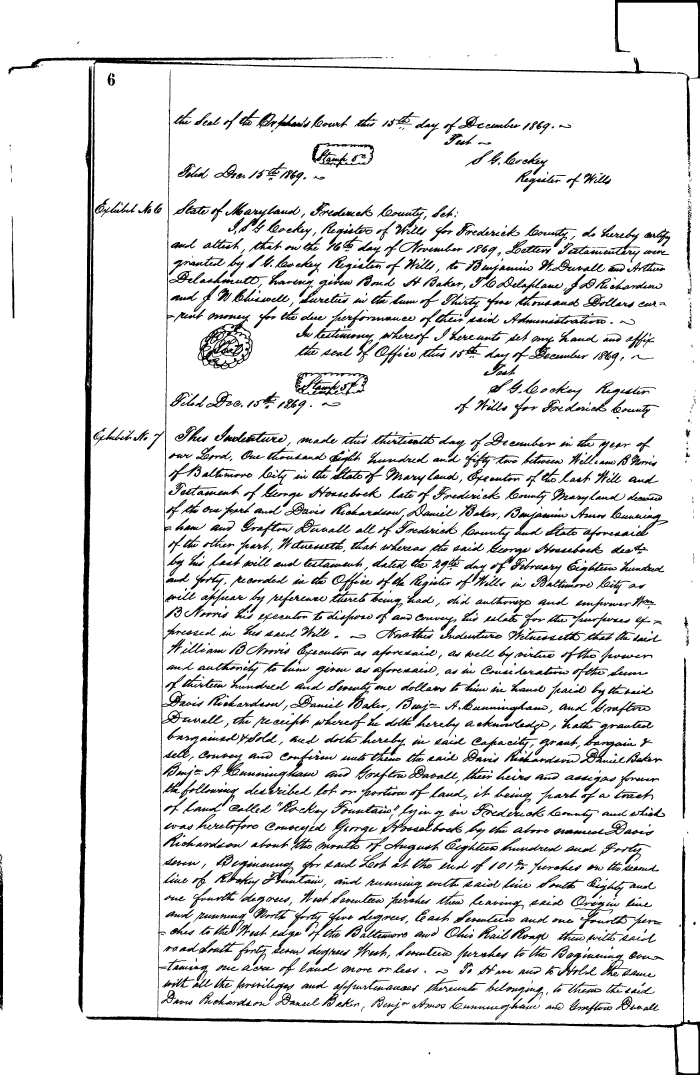 6
the Seal of the Orphan's Court this 15th day of December 1869. ~
Test ~
Stamp 5c
S G. Cockey
Filed Dec. 15th 1869. ~
Register of Wills
Exhibit No 6
State of Maryland, Frederick County, Sct:
I, S G Cockey, Register of Wills for Frederick County, do hereby certify
and attest, that on the 16th day of November 1869, Letters Testamentary were
granted by S. G. Cockey Register of Wills, to Benjamin W. Duvall and Arthur
Delashmutt, having given Bond H Baker, T. C Delaplane J D Richardson
and J W Chiswell, sureties in the Sum of Thirty five thousand Dollars cur=
=rent money for the due performance of their said Administration. ~
In testimony whereof I hereunto set my hand and affix
the seal of Office this 15th day of December 1869. ~
Test
Stamp 5c
S. G. Cockey Register
Filed Dec. 15th 1869. ~
of Wills for Frederick County
Exhibit No 7
This Indenture, made this thirteenth day of December in the year of
our Lord, One thousand Eight hundred and fifty two between William B Norris
of Baltimore City in the State of Maryland, Executor of the last Will and
Testament of George Housebock late of Frederick County Maryland
of the one part and Davis Richardson, Daniel Baker, Benjamin Amos Cunning=
=ham and Grafton Duvall all of Frederick County and State aforesaid
of the other part, Witnesseth, that whereas the said George Housebock
by his last will and testament, dated the 29th day of February Eighteen hundred
and forty, recorded in the Office of the Register of Wills in Baltimore City as
will appear by reference thereto being had, did authorize and empower Wm
B Norris his executor to dispose of and convey, his estate for the purposes ex=
pressed in his said Will. ~ Now this Indenture Witnesseth that the said
William B Norris Executor as aforesaid, as well by virtue of the power
and authority to him given as aforesaid, as in Consideration of the sum
of thirteen hundred and Seventy one dollars to him in hand paid by the said
Davis Richardson, Daniel Baker, Benjn A. Cunningham, and Grafton
Duvall, the receipt whereof he doth hereby acknowledge, hath granted
bargained & Sold, and doth hereby in said capacity, grant, bargain &
sell, convey and confirm unto them the said Davis Richardson Daniel Baker
Benjn A Cunningham and Grafton Duvall, their heirs and assigns forever
the following described lot or portion of land, it being part of a tract
of land called "Rockey Fountain", lying in Frederick County and which
was heretofore conveyed George Housebock by the above named Davis
Richardson about the month of August Eighteen hundred and Forty
seven, Beginning for said Lot at the end of perches on the second
line of Rockey Fountain, and running with said line South Eighty and
one fourth degrees, West Seventeen perches then leaving said Origin line
and running North forty five degrees, East Seventeen and one fourth per=
=ches to the West edge of the Baltimore and Ohio Rail Road then with said
road South forty seven degrees West, Seventeen perches to the Beginning con=
=taining one acre of land more or less. ~ To Have and to Hold the same
with all the privileges and appurtenances thereunto belonging, to them the said
Davis Richardson Daniel Baker, Benjn Amos Cunningham and Grafton Duvall